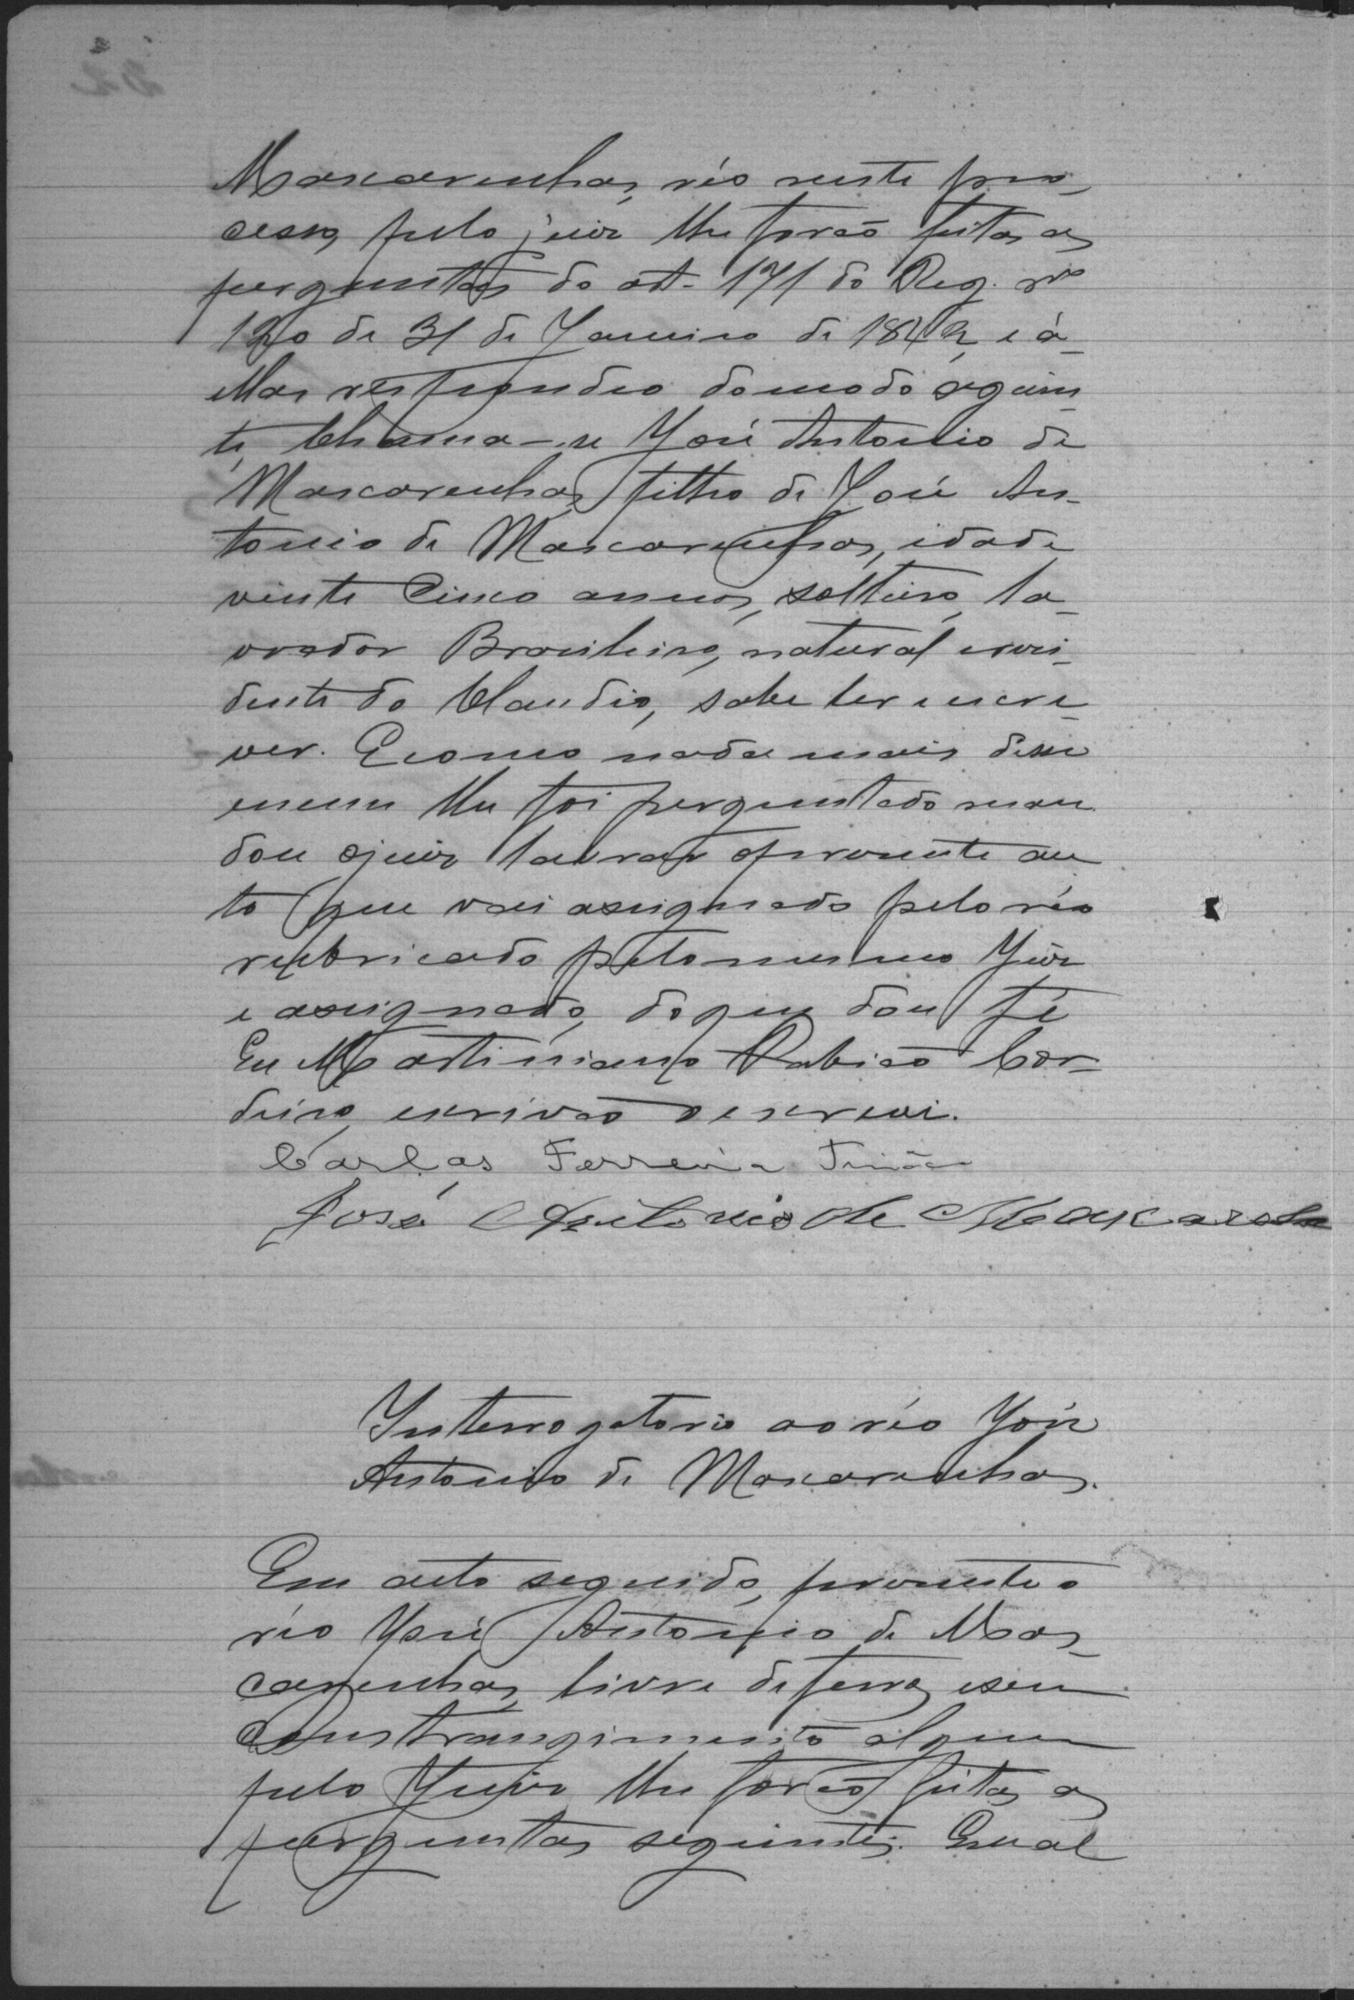 Mascarenhas, réo neste pro-
cesso, pelo juiz lhe forão feitas as
perguntas do art. 171 do Reg. nº
120 de 31 de Janeiro de 1842, e á
ellas respondeo do modo seguin-
te, Chama-se José Antonio de
Mascarenhas, filho de José An-
tonio de Mascarenhas, idade
vinte cinco annos, solteiro, la-
vrador Brasileiro, natural e resi-
dente do Claudio, sabe ler e escre-
ver. E como nada mais disse
e nem lhe foi perguntado man-
dou o juiz lavrar o presente au
to que vai assignado pelo réo
rubricado pelo mesmo Juiz
e assignado, do que dou fé
Eu Martiniano Rabico Cor-
deiro, escrivão o escrevi.
Carlos Ferreira Tinôco
José Antonio de Mascarenha
Interrogatorio ao réo José
Antonio de Mascarenhas.
Em acto seguido, presente o
réo José Antonio de Mas-
carenhas, livre de ferros e sem
constrangimento algum
pelo Juiz lhe forão feitas as
perguntas seguintes. Qual